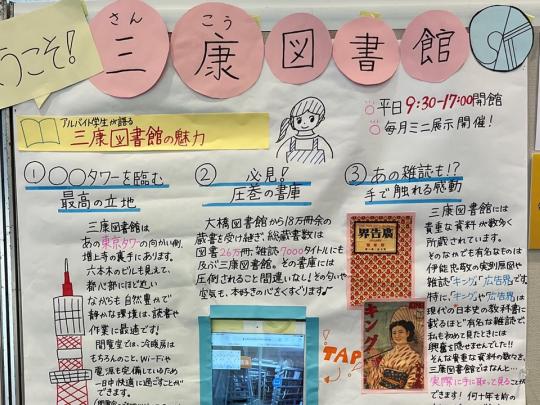 うこそ!
さん
こう
三康図書館
平日9:30-17:00開館
毎月ミニ展示開催!
アルバイト学生が語る
三康図書館の魅力
① 〇〇タワーを臨む
最高の立地
三康図書館は
あの東京タワーの向かい側、
増上寺の裏手にあります。
六本木のビルも見えて、
都心部にほど近い
ながらも自然豊かで
静かな環境は、読書や
作業に最適です!
閲覧室では、冷暖房は
もちろんのこと、Wi-Fiや
電源も完備しているため
一日中快適に過ごすことが
できます。
② 必見!
圧巻の書庫
大橋図書館から18万冊余の
蔵書を受け継ぎ、総蔵書数は
図書26万冊、雑誌7000タイトルにも
及ぶ三康図書館。その書庫には
圧倒されること間違いなし!その匂いや
空気も、本好きの心をくすぐります♪
TAP
③ あの雑誌も!?
手で触れる感動
三康図書館には
貴重な資料が数多く
所蔵されています。
そのなかでも有名なものは
伊能忠敬の実測原図や
雑誌「キング」「広告界」です。
特に、「キング」や「広告界」は
現代の日本史の教科書に
載るほど有名な雑誌で、
私も初めて見たときには
興奮を隠せませんでした!!
そんな貴重な資料の数々を、
三康図書館ではなんと…
実際に手に取って見ることが
できます! 何十年も前の
界告廣
キング